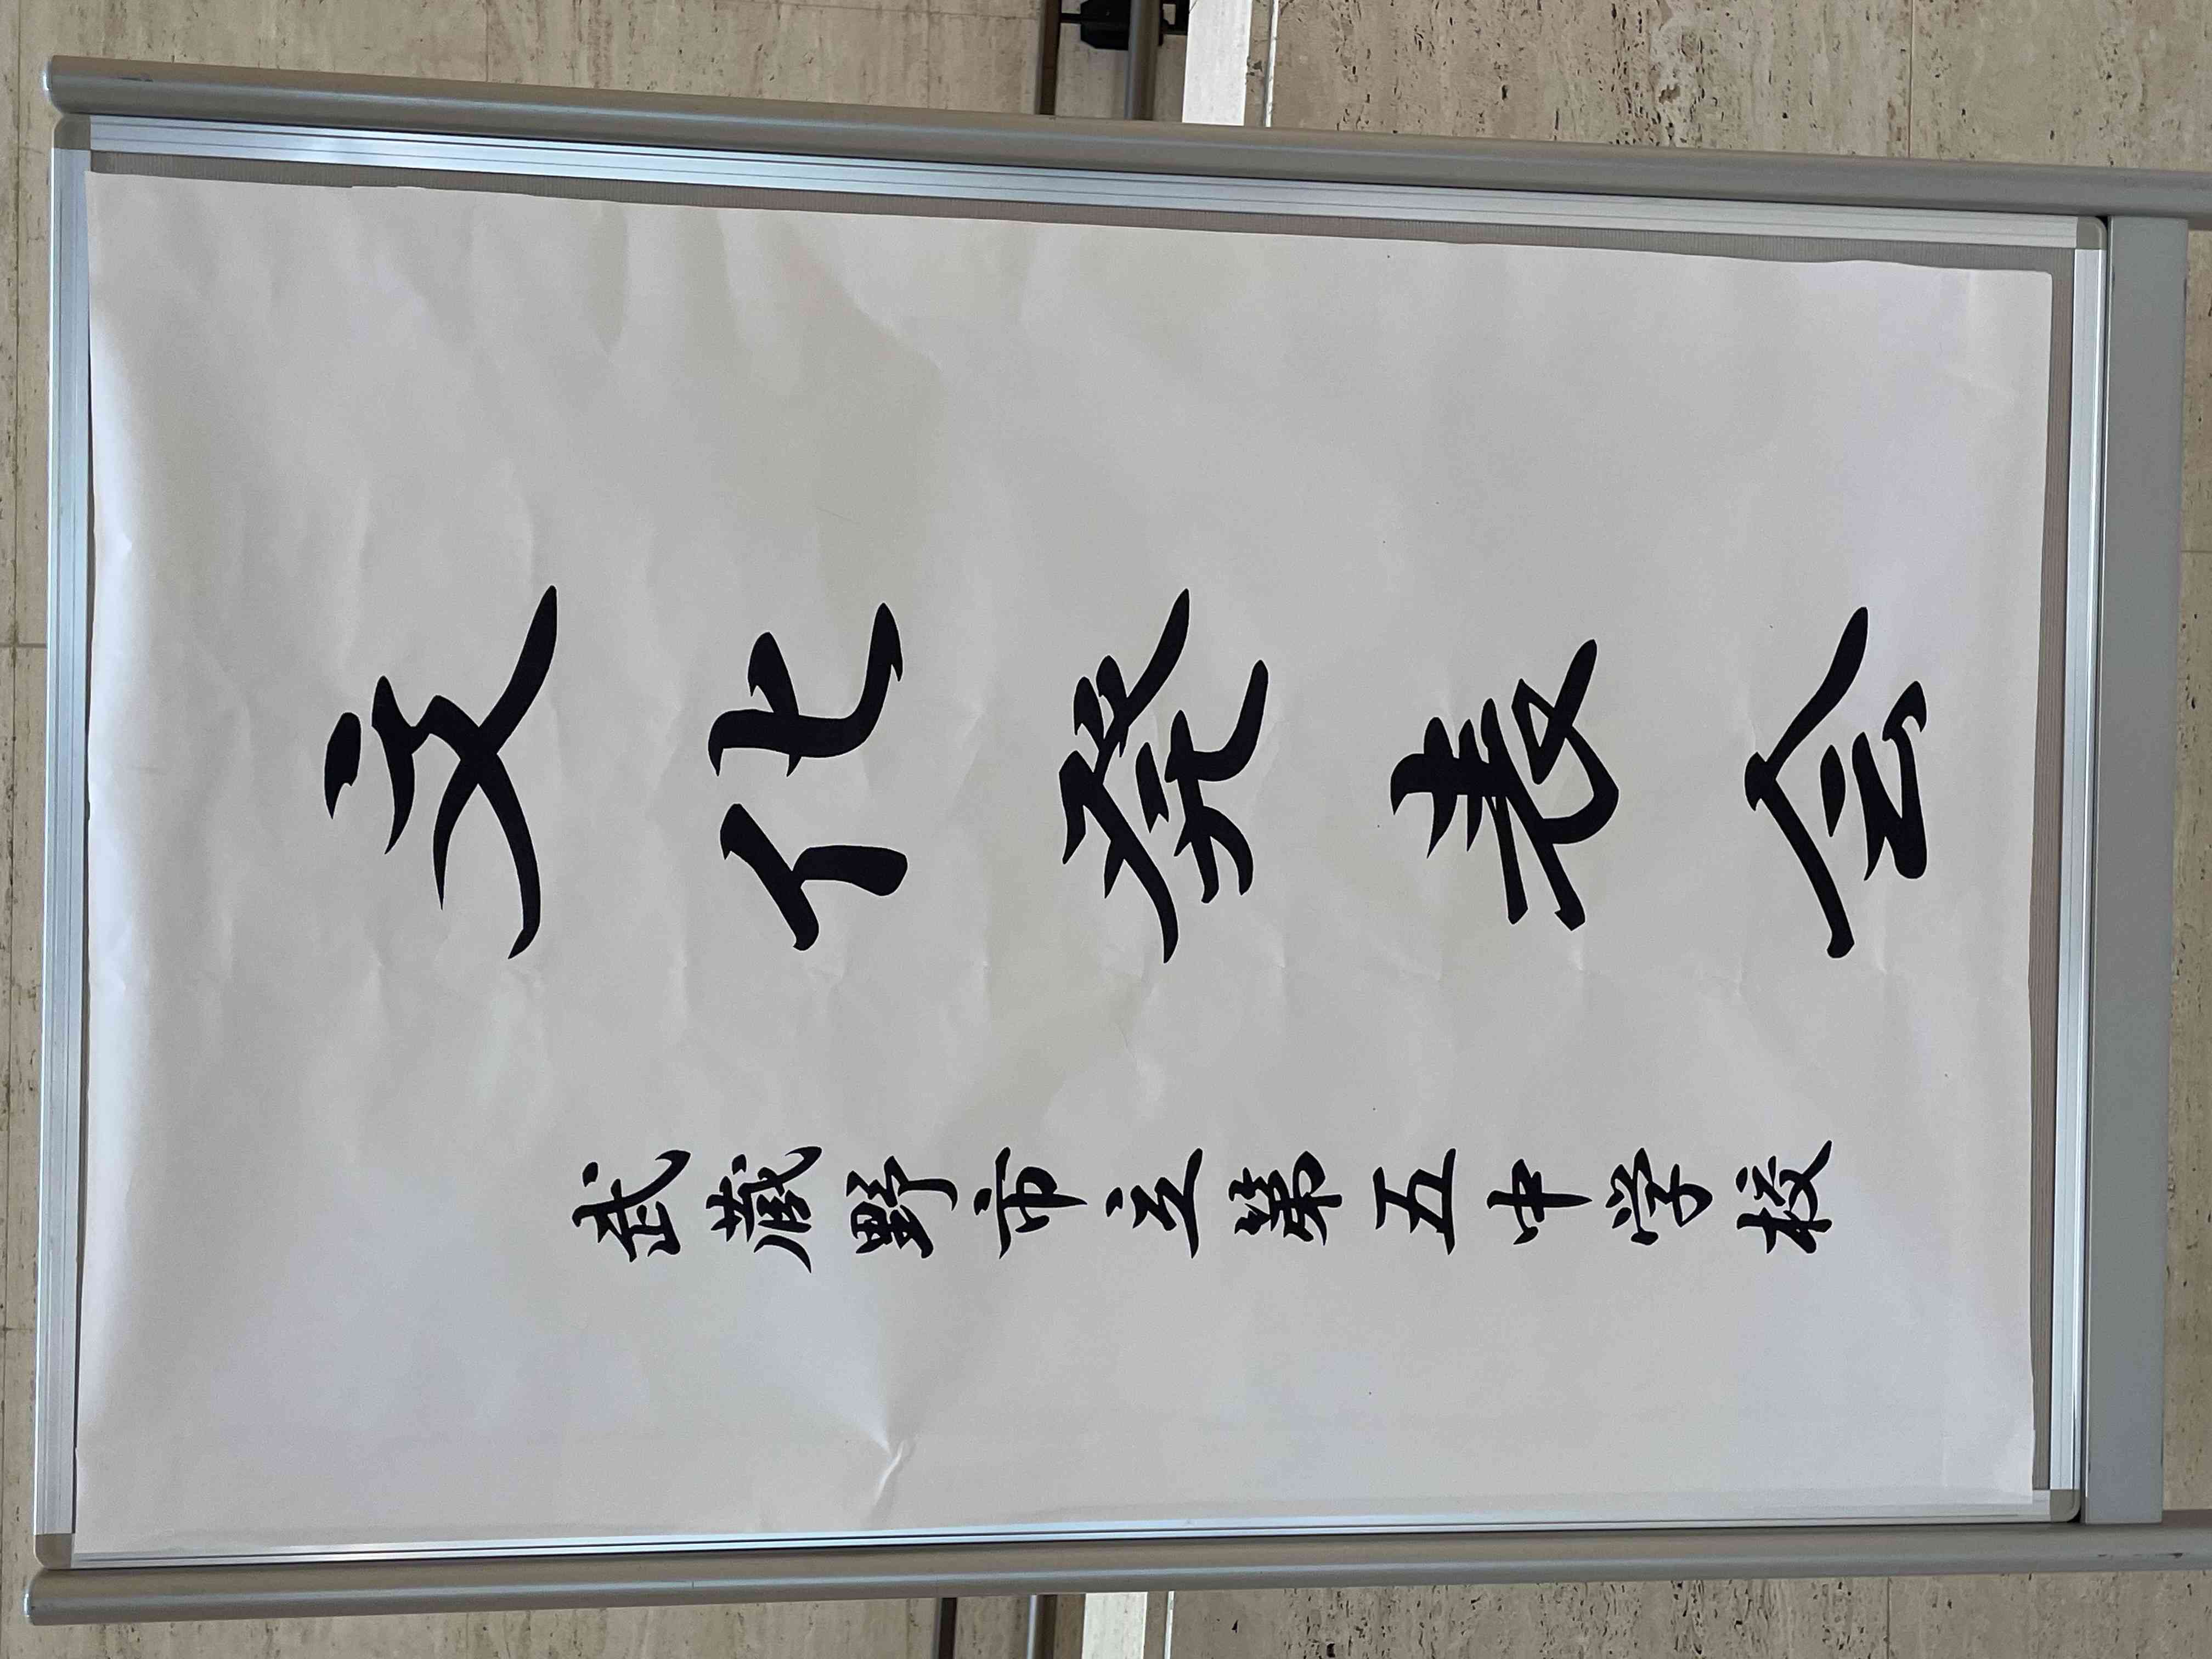 文化発表会
武蔵野市立第五中学校